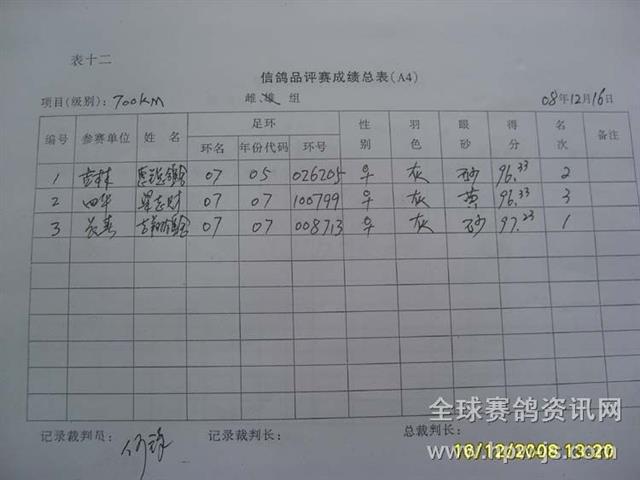 表十二
信鸽品评赛成绩总表(A4)
项目(级别): 700KM 雌雄 组 08年12月16日
编号 参赛单位 姓名 足环 性别 羽色 眼砂 得分 名次 备注
环名 年份代码 环号
1 吉林 07 05 026205 ♀ 灰 砂 96.33 2
2 四华 07 07 100799 ♀ 灰 黄 96.33 3
3 长春 07 07 008713 ♀ 灰 砂 97.23 1
记录裁判员: 记录裁判长: 总裁判长:
全球赛鸽资讯网
16/12/2008 13:20